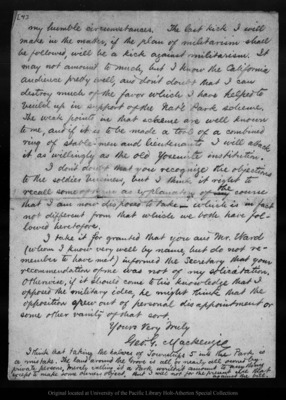 my humble circumstances. The last kick I will
make in the matter, if the plan of militarism shall
be followed, will be a kick against militarism. It
may not amount to much, but I know the California
audience pretty well, and don't doubt that I can
destroy much of the favor which I have helped to
build up in support of the Nat'l Park scheme.
The weak points in that scheme are well known
to me, and if it is to be made a tool of a combined
ring of stable-men and lieutenants I will attack
it as willingly as the old Yosemite institution.
I don't doubt that you recognize the objections
to the soldier business, but I think it right to
recall some of them as explanatory of the course
that I am now disposed to take, which is in fact
not different from that which we both have fol-
lowed heretofore.
I take it for granted that you and Mr. Ward
(whom I know very well by name but do not re-
member to have met) informed the Secretary that your
recommendation of me was not of my solicitation.
Otherwise, if it should come to his knowledge that I
opposed the military idea, he might think that the
opposition grew out of personal disappointment or
some other vanity of that sort.
Yours Very Truly
Geo. G. Mackenzie
I think that taking the balance of Townships 5 into the Park is
a mistake. The land around the Grove is all or nearly all owned by
private persons. Merely calling it a Park wouldn't amount to anything
except to make some owners object,
Original located at University of the Pacific Library Holt-Atherton Special Collections